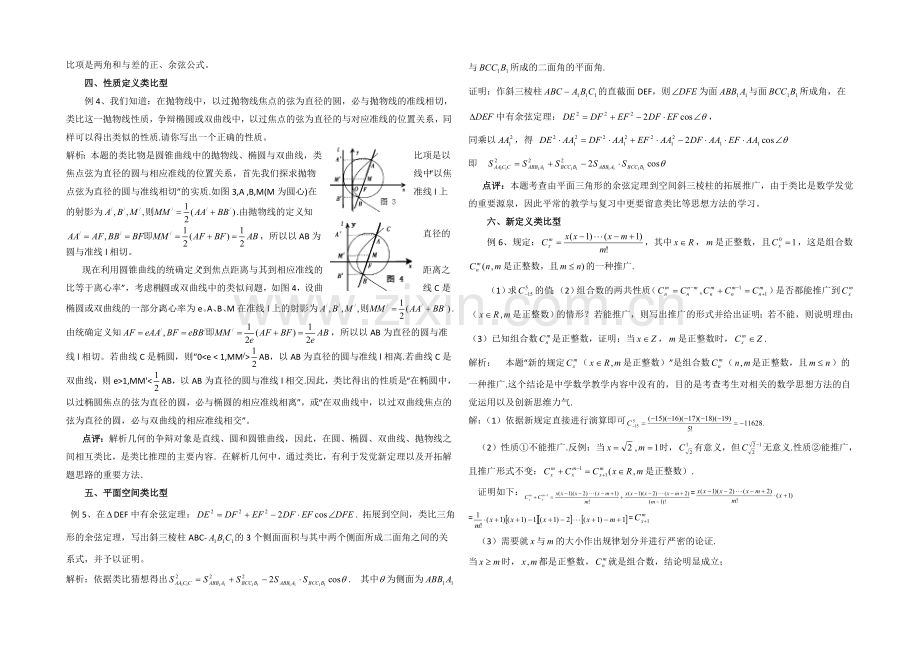 比项是两角和与差的正、余弦公式。
四、性质定义类比型
例 4、我们知道：在抛物线中，以过抛物线焦点的弦为直径的圆，必与抛物线的准线相切，
类比这一抛物线性质，争辩椭圆或双曲线中，以过焦点的弦为直径的与对应准线的位置关系，同
样可以得出类似的性质.请你写出一个正确的性质。
解析：本题的类比物是圆锥曲线中的抛物线、椭圆与双曲线，类比项是以
焦点弦为直径的圆与相应准线的位置关系，首先我们探求抛物线中"以焦
点弦为直径的圆与准线相切"的实质.如图 3,A ,B,M(M 为圆心)在准线 l 上
的射影为 A′, B′, M′,则MM′=1/2(AA′+BB′).由抛物线的定义知
AA′=AF,BB′=BF即MM′=1/2(AF+BF)=1/2AB，所以以 AB 为直径的
圆与准线 l 相切。
现在利用圆锥曲线的统确定义"到焦点距离与其到相应准线的距离之
比等于离心率"，考虑椭圆或双曲线中的类似问题，如图 4，设曲线 C 是
椭圆或双曲线的一部分离心率为 e.A、B、M 在准线 l 上的射影为 A′,B′,M′,则MM′=1/2(AA′+BB′).
由统确定义知 AF=eAA′,BF=eBB′即MM′=1/2e(AF+BF)=1/2e AB，所以以 AB 为直径的圆与准
线 l 相切。若曲线 C 是椭圆，则"0<e < 1,MM′>1/2AB，以 AB 为直径的圆与准线 l 相离.若曲线 C 是
双曲线，则 e>1,MM'<1/2AB，以 AB 为直径的圆与准线 l 相交.因此，类比得出的性质是"在椭圆中，
以过椭圆焦点的弦为直径的圆，必与椭圆的相应准线相离"，或"在双曲线中，以过双曲线焦点的
弦为直径的圆，必与双曲线的相应准线相交"。
点评：解析几何的争辩对象是直线、圆和圆锥曲线，因此，在圆、椭圆、双曲线、抛物线之
间相互类比，是类比推理的主要内容．在解析几何中，通过类比，有利于发觉新定理以及开拓解
题思路的重要方法．
五、平面空间类比型
例 5、在 Δ DEF 中有余弦定理：DE²=DF²+EF²-2DF·EFcos∠DFE．拓展到空间，类比三角
形的余弦定理，写出斜三棱柱 ABC-A₁B₁C₁的 3 个侧面面积与其中两个侧面所成二面角之间的关
系式，并予以证明。
解析：依据类比猜想得出 S²AA₁C₁C=S²ABB₁A₁+S²BCC₁B₁-2S ABB₁A₁·S BCC₁B₁cosθ． 其中θ为侧面为 ABB₁A₁
与 BCC₁B₁所成的二面角的平面角．
证明：作斜三棱柱 ABC-A₁B₁C₁的直截面 DEF，则∠DFE为面 ABB₁A₁与面 BCC₁B₁所成角，在
ΔDEF中有余弦定理：DE²=DF²+EF²-2DF·EFcosθ，
同乘以AA₁²，得 DE²·AA₁²=DF²·AA₁²+EF²·AA₁²-2DF·AA₁·EF·AA₁cosθ
即 S²AA₁C₁C=S²ABB₁A₁+S²BCC₁B₁-2S ABB₁A₁·S BCC₁B₁cosθ
点评：本题考查由平面三角形的余弦定理到空间斜三棱柱的拓展推广，由于类比是数学发觉
的重要源泉，因此平常的教学与复习中更要留意类比等思想方法的学习。
六、新定义类比型
例 6、规定：Cₓᵐ=x(x-1)⋯(x-m+1)/m!，其中 x∈R，m是正整数，且 Cₓ⁰=1，这是组合数
Cₙᵐ(n,m是正整数，且 m≤n)的一种推广．
（1）求C⁵₋₁₅的值；（2）组合数的两共性质(Cₙᵐ=Cₙⁿ⁻ᵐ,Cₙᵐ+Cₙᵐ⁻¹=Cₙ₊₁ᵐ)是否都能推广到Cₓᵐ
（x∈R,m是正整数）的情形？若能推广，则写出推广的形式并给出证明；若不能，则说明理由；
（3）已知组合数Cₙᵐ是正整数，证明：当x∈Z，m是正整数时，Cₓᵐ∈Z．
解析： 本题"新的规定Cₓᵐ（x∈R,m是正整数）"是组合数Cₙᵐ(n,m是正整数，且m≤n）的
一种推广.这个结论是中学数学教学内容中没有的，目的是考查考生对相关的数学思想方法的自
觉运用以及创新思维力气.
解:（1）依据新规定直接进行演算即可C⁵₋₁₅=(-15)(-16)(-17)(-18)(-19)/5!=-11628.
（2）性质①不能推广.反例：当x=√2,m=1时，C¹√2有意义，但C√2^(√2-1)无意义.性质②能推广，
且推广形式不变：Cₓᵐ+Cₓᵐ⁻¹=Cₓ₊₁ᵐ(x∈R,m是正整数).
证明如下：Cₓᵐ+Cₓᵐ⁻¹=x(x-1)(x-2)⋯(x-m+1)/m!+x(x-1)(x-2)⋯(x-m+2)/(m-1)!=x(x-1)(x-2)⋯(x-m+2)/m!(x+1)
=1/m!·(x+1)[(x+1)-1][(x+1)-2]⋯[(x+1)-m+1]=Cₓ₊₁ᵐ
（3）需要就x与m的大小作出规律划分并进行严密的论证.
当x≥m时，x,m都是正整数，Cₙᵐ就是组合数，结论明显成立；